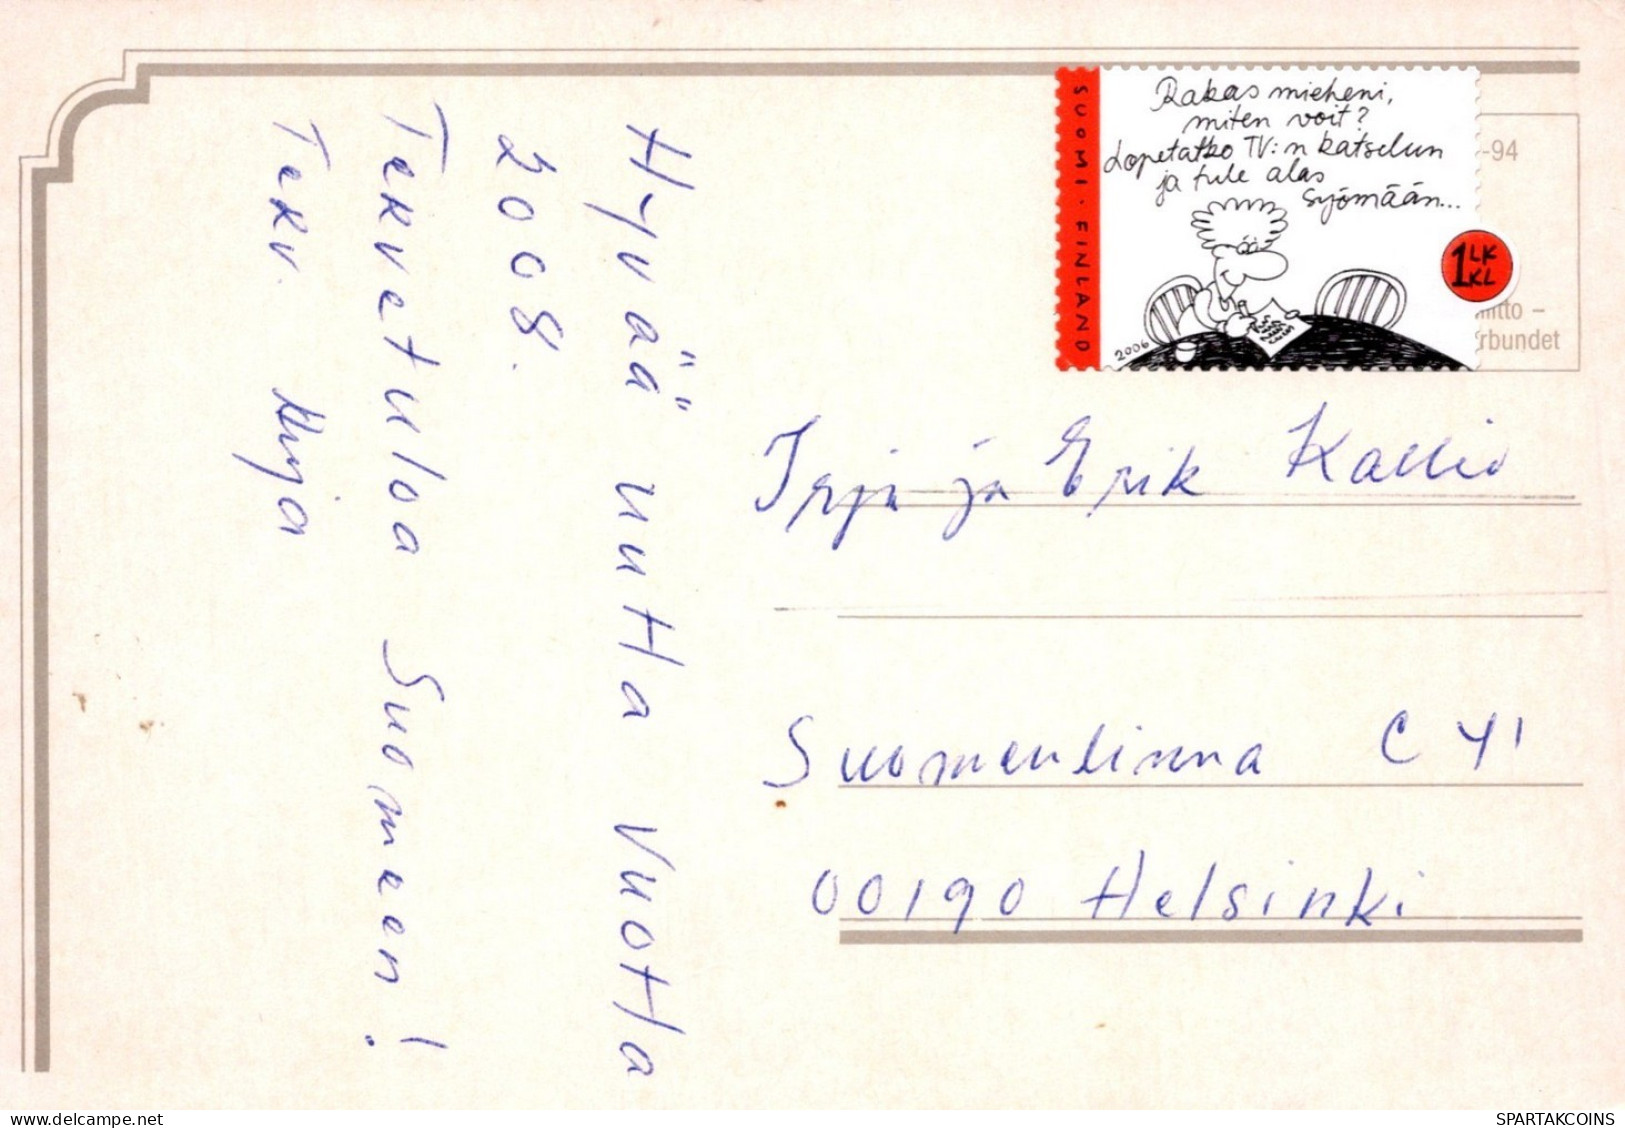 Hyvää uutta vuotta
2008.
Tervetuloa Suomeen!
Terv.
SUOMI · FINLAND
Rakas mieheni,
miten voit?
Lopetatko TV:n katselun
ja tule alas
syömään...
1 LK
KL
2006
-94
iitto –
rbundet
Irja ja Erik Kallio
Suomenlinna C 41
00190 Helsinki
delcampe.net
SPARTAKCOINS